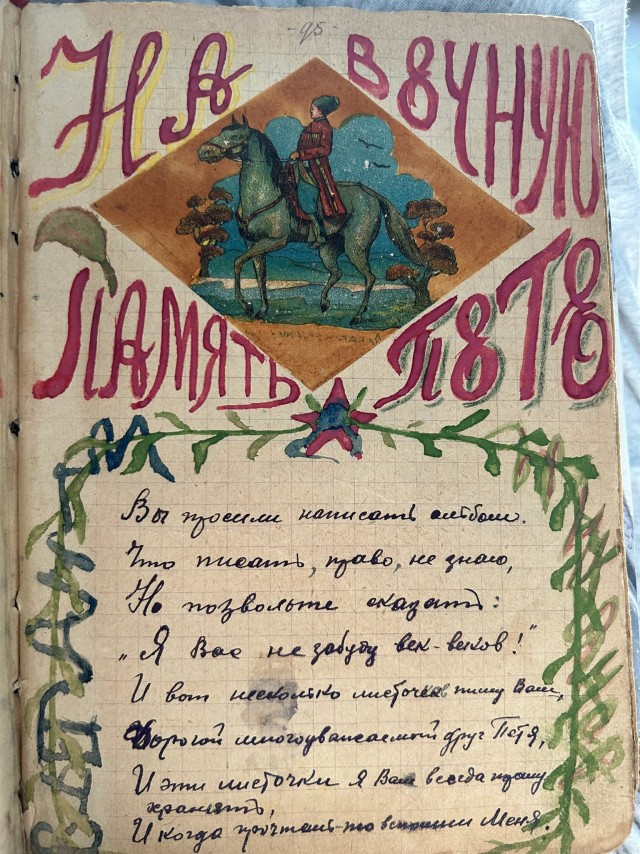 -95-
НА ВЕЧНУЮ
ПАМЯТЬ ПЕТЕ
Вы просили написать альбом.
Что писать, право, не знаю,
Но позвольте сказать:
„Я Вас не забуду век-веков!"
И вот несколько листочков пишу Вам,
Дорогой многоуважаемый друг Петя,
И эти листочки я Вас всегда прошу
хранить,
И когда прочтешь-то вспомни Меня.